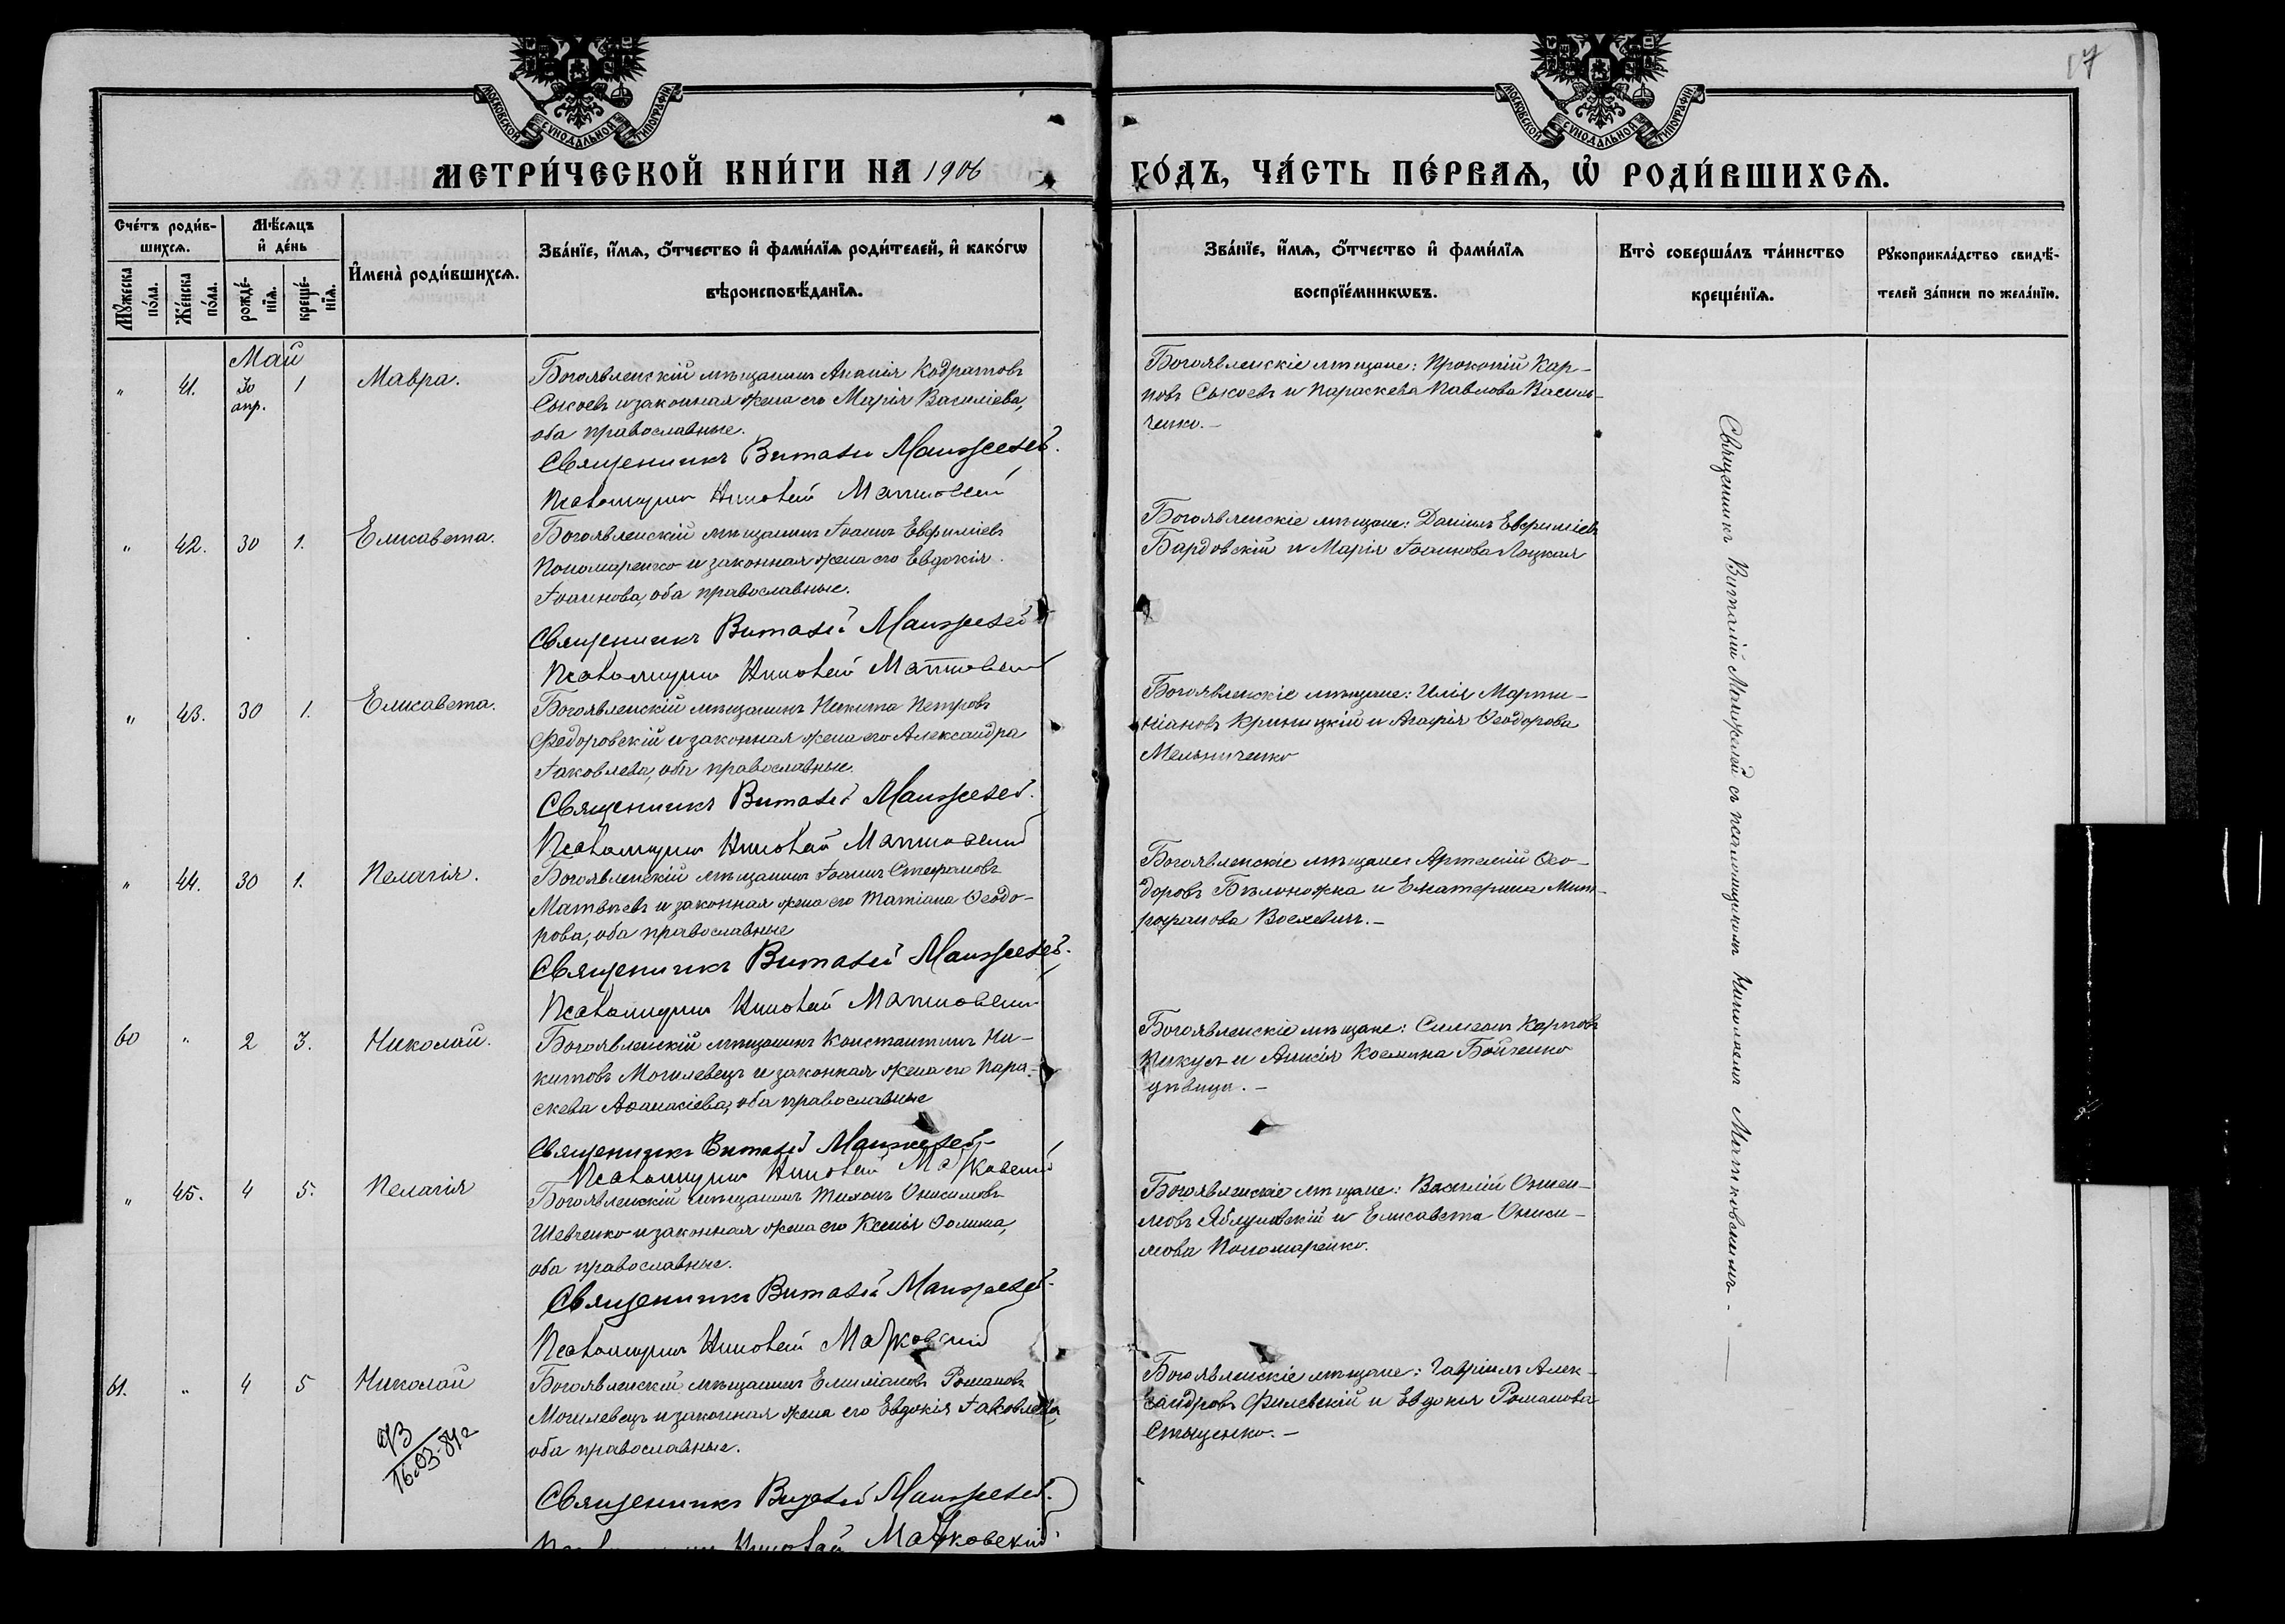 17
МОСКОВСКОЙ СѴНОДАЛЬНОЙ ТИПОГРАФІИ
МОСКОВСКОЙ СѴНОДАЛЬНОЙ ТИПОГРАФІИ
МЕТРИ́ЧЕСКОЙ КНИ́ГИ НА 1906 ГО́ДЪ, ЧА́СТЬ ПЕ́РВАѦ, Ѡ҆ РОДИ́ВШИХСѦ.
Сче́тъ роди́в-
шихсѧ.
Мꙋ́жеска по́ла.
Же́нска по́ла.
Мѣ́сѧцъ
и҆ де́нь
рожде́-
нїѧ.
креще́-
нїѧ.
И҆мена̀ роди́вшихсѧ.
Зва́нїе, и҆́мѧ, ѻ҆́тчество и҆ фами́лїѧ роди́телей, и҆ како́гѡ
вѣроисповѣ́данїѧ.
Зва́нїе, и҆́мѧ, ѻ҆́тчество и҆ фами́лїѧ
воспрїе́мникѡвъ.
Кто̀ соверша́лъ та́инство
креще́нїѧ.
Рꙋкоприкла́дство свидѣ́-
телей за́писи по жела́нїю.
Май
" 41. 30 апр. 1 Мавра.
Богоявленскій мѣщанинъ Ананія Кодратовъ
Сысоевъ и законная жена его Марія Василіева,
оба православные.
Священникъ Виталій
Псаломщикъ Николай
Богоявленскіе мѣщане: Прокопій Кар-
повъ Сысоевъ и Параскева Павлова Василь-
ченко.-
" 42. 30 1. Елисавета.
Богоявленскій мѣщанинъ Іоаннъ Евфиміевъ
Пономаренко и законная жена его Евдокія
Іоаннова, оба православные.
Священникъ Виталій
Псаломщикъ Николай
Богоявленскіе мѣщане: Даніилъ Евфиміевъ
Бардовскій и Марія Іоаннова Лоцкая
" 43. 30 1. Елисавета.
Богоявленскій мѣщанинъ Никита Петровъ
Федоровскій и законная жена его Александра
Іаковлева, оба православные.
Священникъ Виталій
Псаломщикъ Николай
Богоявленскіе мѣщане: Илія Марти-
ніановъ Криницкій и Агафія Ѳеодорова
Мельниченко
" 44. 30 1. Пелагія.
Богоявленскій мѣщанинъ Іоаннъ Стефановъ
Матвѣевъ и законная жена его Татіана Ѳеодо-
рова, оба православные
Священникъ Виталій
Псаломщикъ Николай
Богоявленскіе мѣщане: Артемій Ѳео-
доровъ Бѣлоножка и Екатерина Мит-
рофанова
60 " 2 3. Николай.
Богоявленскій мѣщанинъ Константинъ Ни-
китовъ Могилевецъ и законная жена его Пара-
скева Аѳанасіева, оба православные
Священникъ Виталій
Псаломщикъ Николай Матковскій
Богоявленскіе мѣщане: Симеонъ Карповъ
Пикулъ и Анисія Космина Бойченко
дѣвица.-
" 45. 4 5. Пелагія
Богоявленскій мѣщанинъ Тихонъ Онисимовъ
Шевченко и законная жена его Ксенія Ѳомина,
оба православные.
Священникъ Виталій
Псаломщикъ Николай Матковскій
Богоявленскіе мѣщане: ВасилійОниси-
мовъ Яблуновскій и Елисавета Ониси-
мова Пономаренко.
61. " 4 5 Николай
16.03.
Богоявленскій мѣщанинъ Емиліанъ Романовъ
Могилевецъ и законная жена его Евдокія Іаковлева,
оба православные.
Священникъ Виталій
Николай Матковскій
Богоявленскіе мѣщане: Гавріилъ Алек-
сандровъ Филевскій и Евдокія Романова
Стыценко.-
Священникъ Виталій съ псаломщикомъ Николаемъ Матковскимъ.-